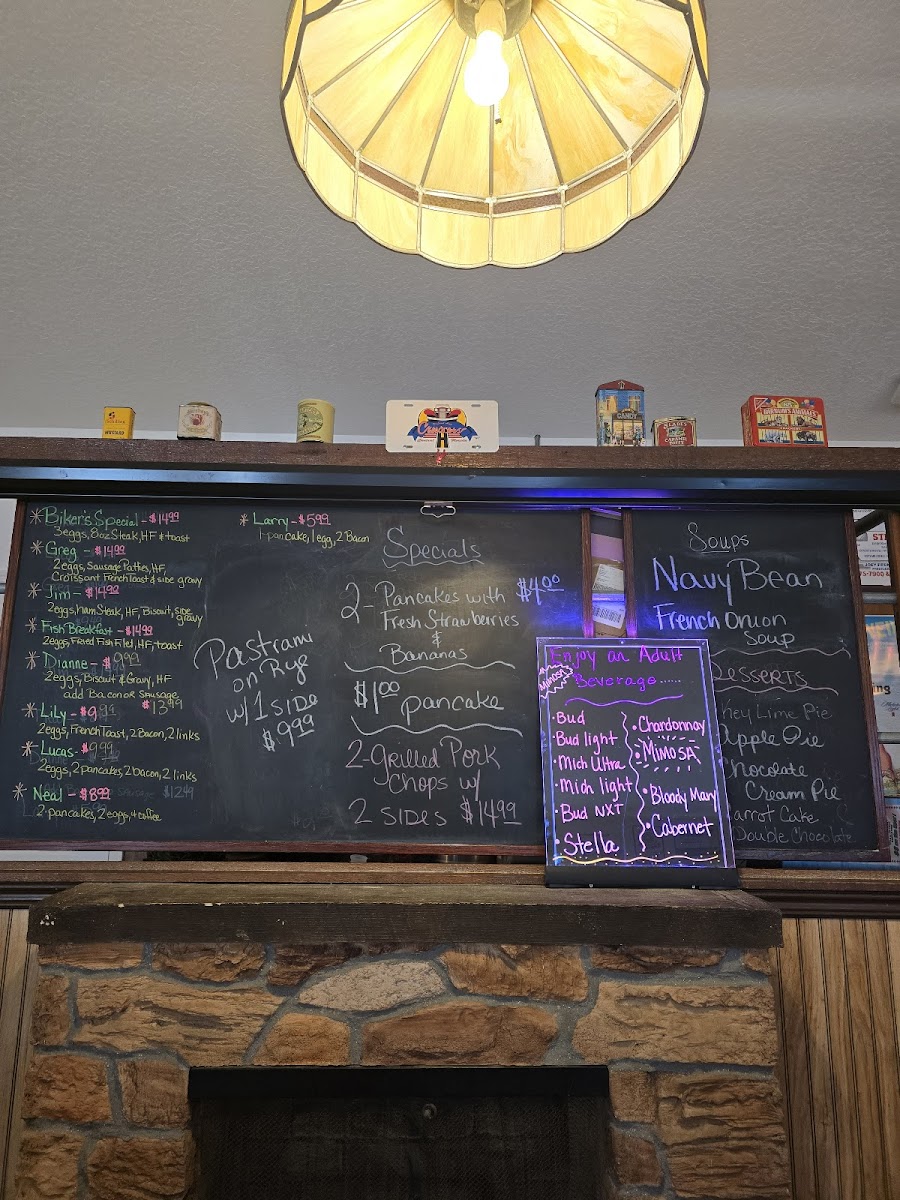 *Biker's Special - $14.99
3eggs, 8oz Steak, HF & toast
*Greg - $14.99
2eggs, Sausage Patties, HF,
Croissant French Toast & side gravy
*Jim - $14.99
2eggs, Ham Steak, HF, Biscuit, side gravy
*Fish Breakfast - $14.99
2eggs, Fried Fish Filet, HF, toast
*Dianne - $9.99
2eggs, Biscuit & Gravy, HF
add Bacon or Sausage
$13.49
*Lily - $9.99
2eggs, French Toast, 2Bacon, 2links
*Lucas - $9.99
2eggs, 2pancakes, 2bacon, 2 links
*Neal - $8.99
2-pancakes, 2eggs, 4coffee
*Larry - $5.99
1-pancake, 1egg, 2Bacon
Pastrami
on Rye
w/1 side
$9.99
Specials
2- Pancakes with $4.00
Fresh Strawberries
&
Bananas
$1.00 pancake
2-grilled Pork
Chops w/
2 sides $14.99
Soups
Navy Bean
French Onion
Soup
Desserts
Key Lime Pie
Apple Pie
Chocolate
Cream Pie
Carrot Cake
Double Chocolate
Enjoy an Adult
Mimosa
Beverage......
•Bud
•Bud light
•Mich Ultra
•Mich light
•Bud NXT
•Stella
•Chardonnay
•Mimosa
•Bloody Mary
•Cabernet
MUSTARD
Cruisers
CANDY